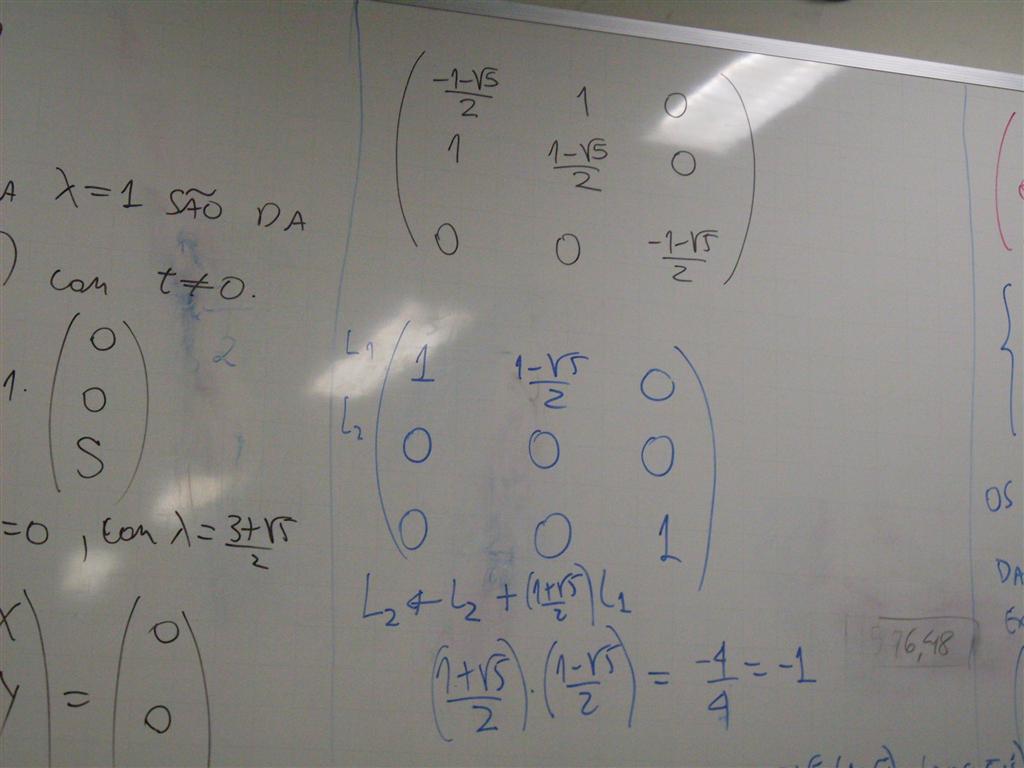 A λ=1 SÃO DA
) com t≠0.
1. (0
0
S)
=0, com λ=3+√5/2
X
y) = (0
0
(-1-√5/2 1 0
1 1-√5/2 0
0 0 -1-√5/2)
L1 (1 1-√5/2 0
L2 0 0 0
0 0 1)
L2 ← L2 + (1+√5/2) L1
(1+√5/2) · (1-√5/2) = -4/4 = -1
76,48
OS
DA